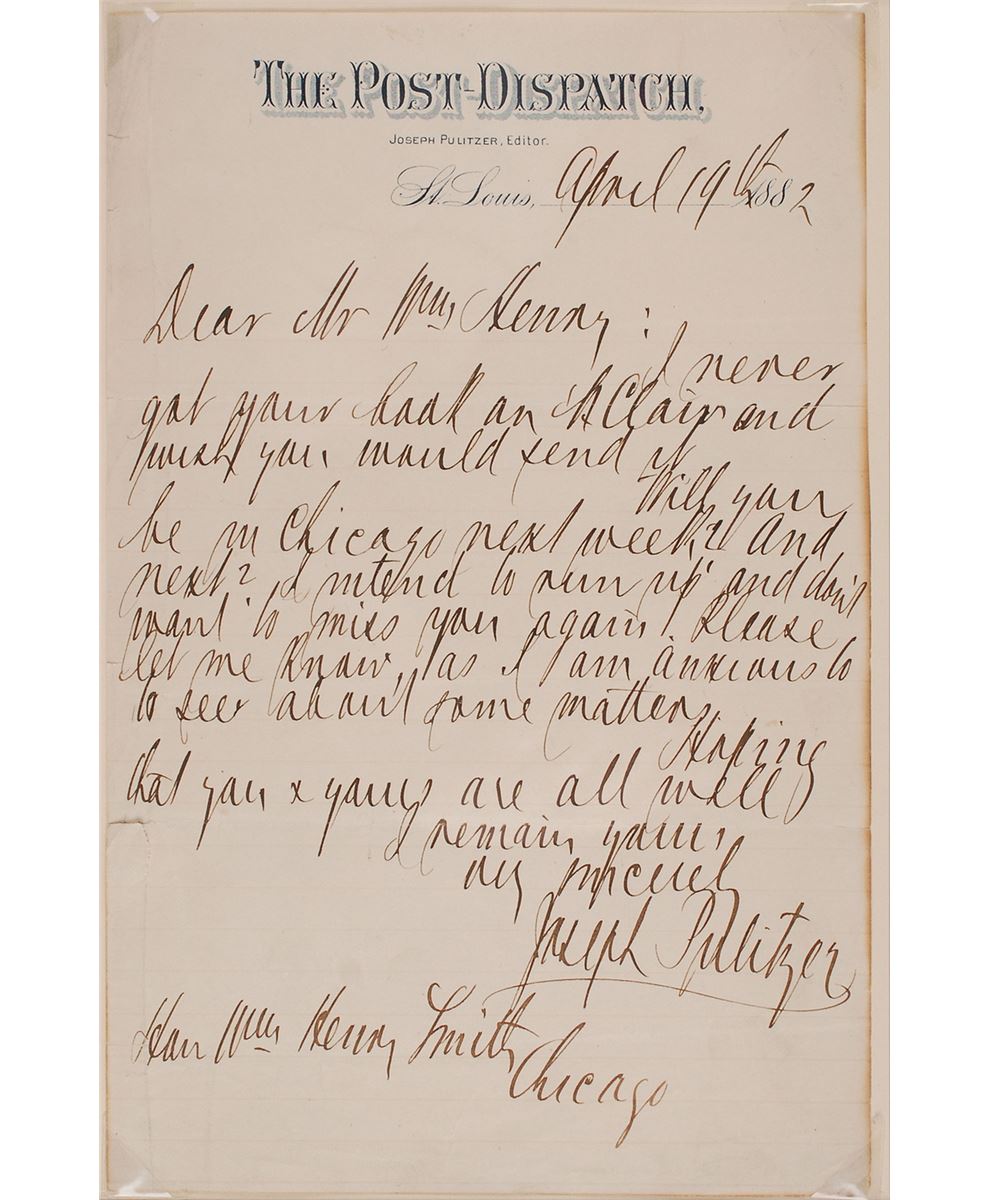 THE POST-DISPATCH,
JOSEPH PULITZER, Editor.
St. Louis, April 19th 1882
Dear Mr Wm Henry :
I never
got your book on St Clair and
wish you would send it
Will you
be in Chicago next week? And
next? I intend to run up and don't
want to miss you again! Please
let me know, as I am anxious to
to see about some matters
Hoping
that you & yours are all well
I remain yours
very sincerely
Joseph Pulitzer
Hon Wm Henry Smith
Chicago